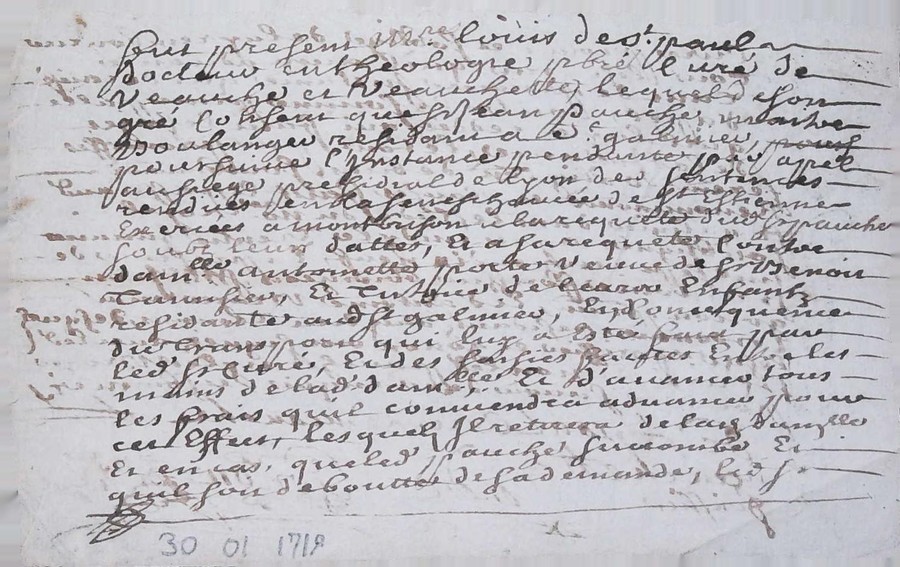 fut present m.re loüis de st. paul
Docteur en theologie pbre curé de
Veauche et Veauchette, lequel de son
gré consent que sr Jean pauche, maitre
Boulanger residant a st galmier,
poursuive l'Instance pendante par apel
au siege presidial de lyon des sentences
rendues en la senechaucée de st Estienne
Exercées a montbrison a la requete dud sr pauche
soubz leurs dattes, Et a sa requete contre
damlle antoinette porte veuve de sr Benoit
Et Tutrice de leurs Enfants
residante aud st galmier, En consequence
du transport qui luy a Esté fait par
led sr curé, Et des saisies faites Entre les
mains de lad damlle Et d'avancer tous
les frais quil conviendra advancer pour
cet Effect, lesquels Il retirera de lad damlle
Et en cas, que led pauche sucombe Et
quil soit deboutté de sa demande, led sr
30 01 1718